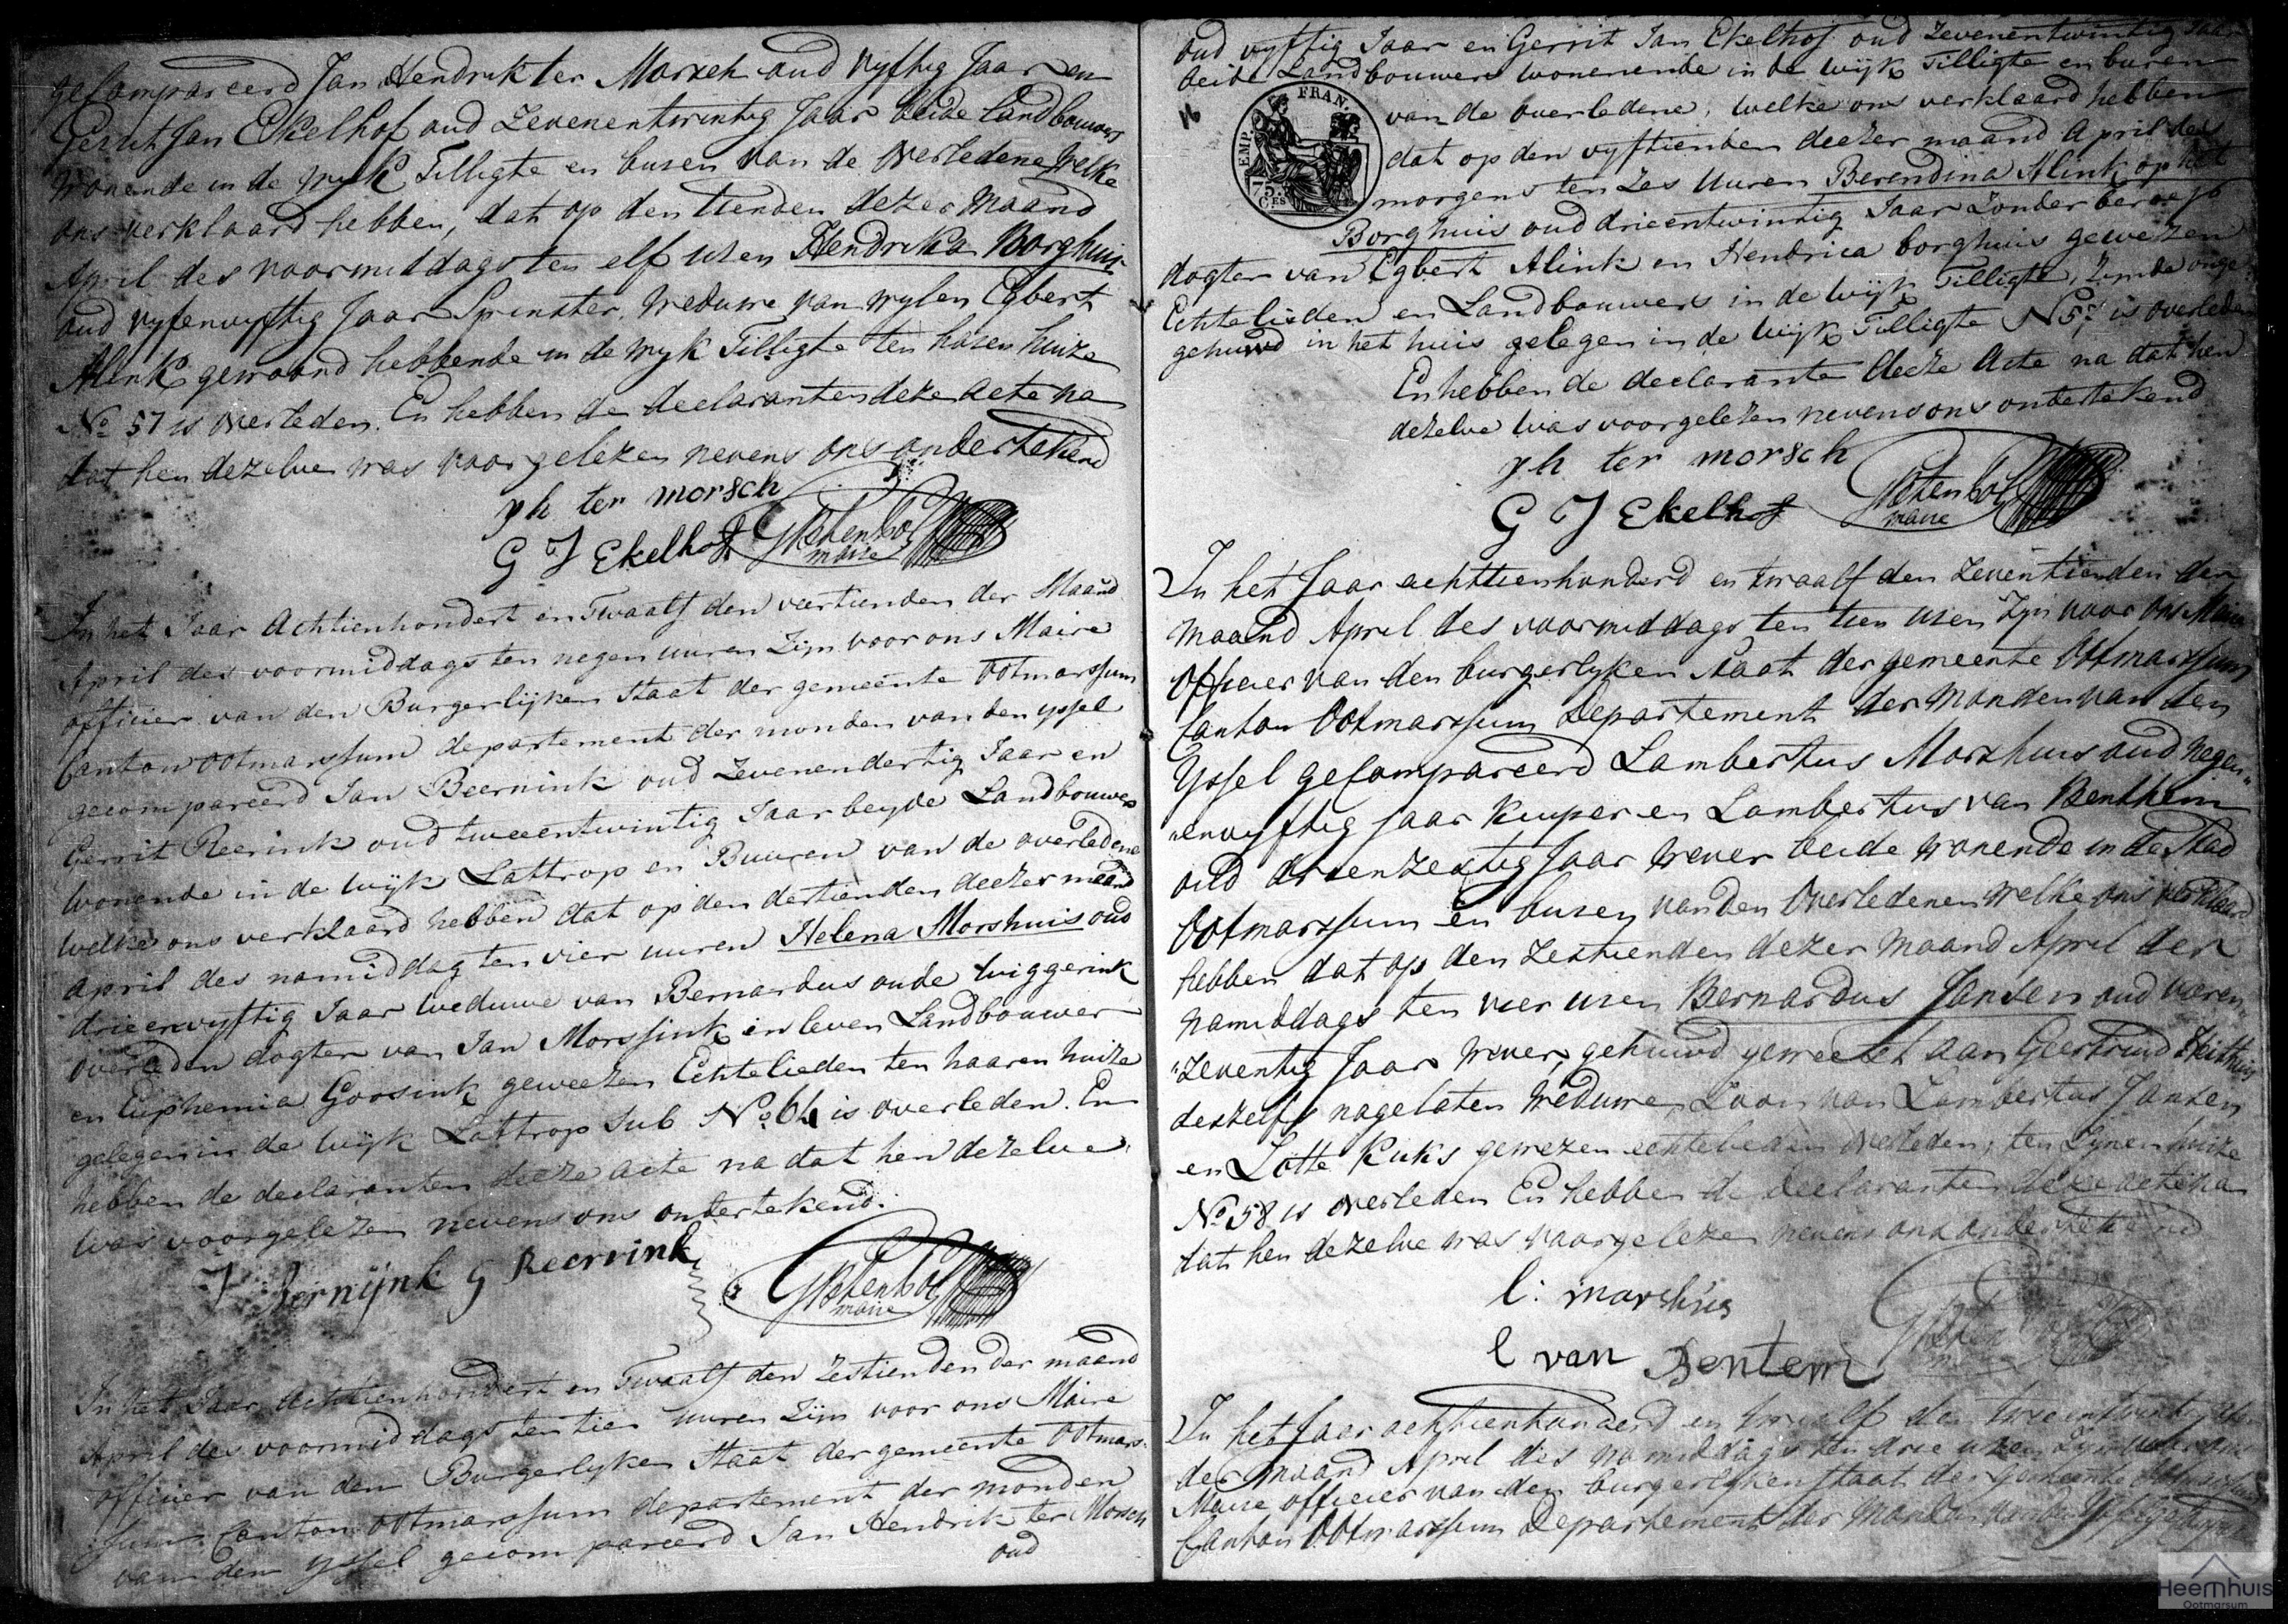 gecompareerd Jan Hendrik ter Morsch oud vyftig Jaar en
Gerrit Jan Ekelhof oud Zevenentwintig Jaar beide Landbouwers
wonende in de wyk Tilligte en buren van de Overledene welke
ons verklaard hebben, dat op den tienden dezer Maand
April des voormiddags ten elf uren Hendrika Borghuis
oud vyfenvyftig Jaar Spinster, Weduwe van wylen Egbert
Alink gewoond hebbende in de wyk Tilligte ten haren huize
No 57 is overleden. En hebben de declaranten deze acte na
dat hen dezelve was voorgelezen nevens ons ondertekend
yh ter morsch
G J Ekelhof
maire
In het Jaar Achtienhondert en Twaalf den veertienden der Maand
April des voormiddags ten negen uuren Zijn voor ons Maire
officier van den Burgerlijken Staat der gemeente Ootmarssum
Canton Ootmarssum departement der monden van den yssel
gecompareerd Jan Beernink oud Zevenendertig Jaar en
Gerrit Reerink oud tweeentwintig Jaar beyde Landbouwers
wonende in de wijk Lattrop en Buuren van de overledene
welke ons verklaard hebben dat op den dertienden deezer maand
April des namiddag ten vier uuren Helena Morshuis oud
drieenvyftig Jaar weduwe van Bernardus oude wiggerink
overleden dogter van Jan Morssink in leven Landbouwer
en Euphemia Goosink geweezen Echtelieden ten haaren huize
gelegen in de wijk Lattrop Sub No 64 is overleden. En
hebben de declaranten deeze acte na dat hen dezelve
was voorgelezen nevens ons ondertekend.
J Bernijnk G Reerrink
maire
In het Jaar Achtienhondert en Twaalf den Zestienden der maand
April des voormiddags ten tien uuren Zijn voor ons Maire
officier van den Burgerlyken Staat der gemeente Ootmars-
sum Canton Ootmarssum departement der monden
van den yssel gecompareerd Jan Hendrik ter Morsch
oud
oud vyftig Jaar en Gerrit Jan Ekelhof oud Zevenentwintig Jaar
beide Landbouwers wonenende in de wijk Tilligte en buren
van de overledene, welke ons verklaard hebben
EMP. FRAN.
75
CES
dat op den vyftienden deezer maand April des
morgens ten Zes Uuren Berendina Alink op het
Borghuis oud drieentwintig Jaar Zonder beroep
dogter van Egbert Alink en Hendrica borghuis gewezen
Echtelieden en Landbouwers in de wijk Tilligte, Zynde onge-
gehuwd in het huis gelegen in de wijk Tilligte No 57 is overleden
En hebben de declarante deeze Acte na dat hen
dezelve was voorgelezen nevens ons ondertekend
yh ter morsch
G J Ekelhof
maire
In het Jaar achttienhonderd en twaalf den Zeventienden der
maand April des voormiddags ten tien uren Zyn voor Ons Maire
Officier van den burgerlyken Staat der gemeente Ootmarssum
Canton Ootmarssum Departement der Monden van den
Yssel gecompareerd Lambertus Morshuis oud negen-
envyftig jaar Kuiper en Lambertus van Benthem
oud drienzestig Jaar Wever beide wonende in de Stad
Ootmarssum en buren van den Overledenen welke ons verklaard
hebben dat op den Zestienden dezer Maand April des
namiddags ten vier uren Bernardus Jansen oud vieren-
zeventig Jaar Wever, gehuwd geweest aan Geertruid
deszelfs nagelaten Weduwe, Zoon van Lambertus Jansen
en Lotte Kuks gewezen echtelieden overleden, ten Zynen huize
No 58 is overleden En hebben de declaranten deze acte na
dat hen dezelve was voorgelezen nevens ons ondertekend
l: morshuis
l van Bentem
In het Jaar achttienhonderd en twaalf den tweentwintigsten
der maand April des namiddags ten drie uren Zyn voor ons
Maire officier van den burgerlyken staat der gemeente Ootmarssum
Canton Ootmarssum Departement der Monden van den Yssel gecompareerd
Heemhuis
Ootmarsum